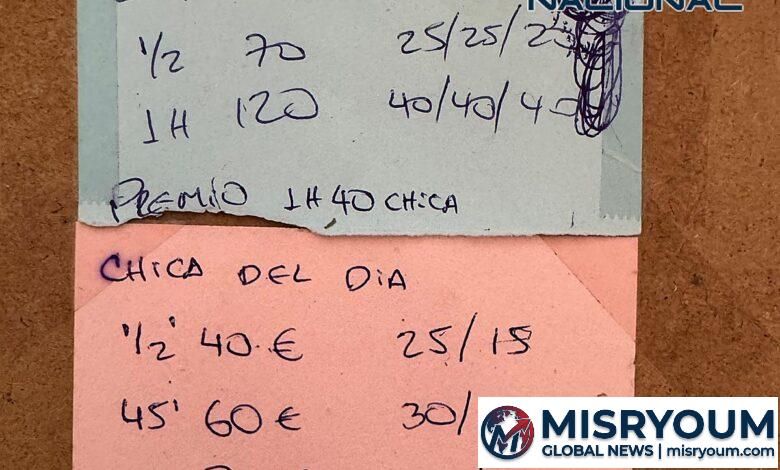 NACIONAL
1/2 70 25/25/25
1H 120 40/40/40
PREMIO 1H 40 CHICA
CHICA DEL DIA
1/2' 40 € 25/15
45' 60 € 30/
MISRYOUM
GLOBAL NEWS | misryoum.com